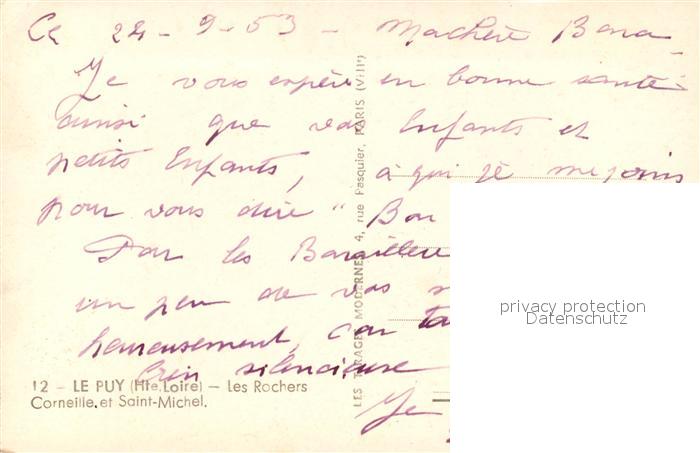 Ce 24-9-53 - Machère Bara
Je vous espère en bonne santé
ainsi que vos Enfants et
petits Enfants, à qui je me joins
pour vous dire "Bon
Par les Baraillere
un peu de vos
heureusement, car ta
bien silencieuse
Je
12 - LE PUY (Hte Loire) - Les Rochers
Corneille, et Saint-Michel.
LES TIRAGES MODERNES 4, rue Pasquier, PARIS (VIIIe)
privacy protection
Datenschutz